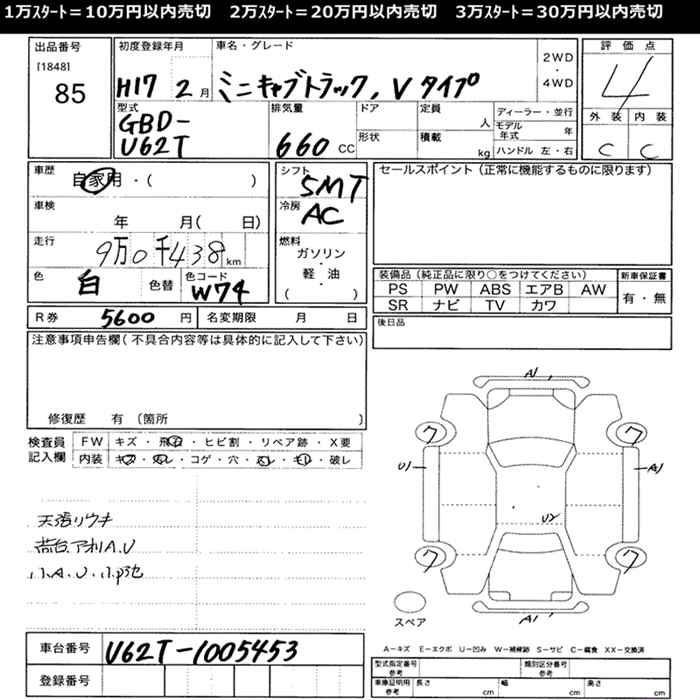 1万ｽﾀｰﾄ＝10万円以内売切　2万ｽﾀｰﾄ＝20万円以内売切　3万ｽﾀｰﾄ＝30万円以内売切
出品番号
[1848]
85
初度登録年月
H17 2 月
車名・グレード
ミニキャブトラック, V タイプ
2WD
・
4WD
評価点
4
外装 内装
C C
型式
GBD-
U62T
排気量
660 CC
ドア
形状
定員
人
積載
kg
ディーラー・並行
モデル年式 年
ハンドル 左・右
車歴
自家用・( )
車検
年 月( 日)
走行
9万0千438 km
色
白
色替
色コード
W74
シフト
5MT
冷房
AC
燃料
ガソリン
・
軽 油
( )
セールスポイント（正常に機能するものに限ります）
装備品（純正品に限り○をつけてください）
PS PW ABS エアB AW
SR ナビ TV カワ
新車保証書
有・無
後日品
R券 5600 円
名変期限 月 日
注意事項申告欄（不具合内容等は具体的に記入して下さい）
修復歴 有 〔箇所 〕
検査員
記入欄
FW キズ・飛石・ヒビ割・リペア跡・X要
内装 キズ・汚レ・コゲ・穴・スレ・キレ・破レ
天張リウキ
荷台.アオリA.U
小A.U.小凹
A1
ワ ワ
U1 A1
U2
ワ ワ
A1
スペア
A－キズ E－エクボ U－凹み W－補修跡 S－サビ C－腐食 XX－交換済
車台番号 U62T-1005453
登録番号
型式指定番号
参考
類別区分番号
参考
車庫証明用
参考
長さ cm 幅 cm 高さ cm